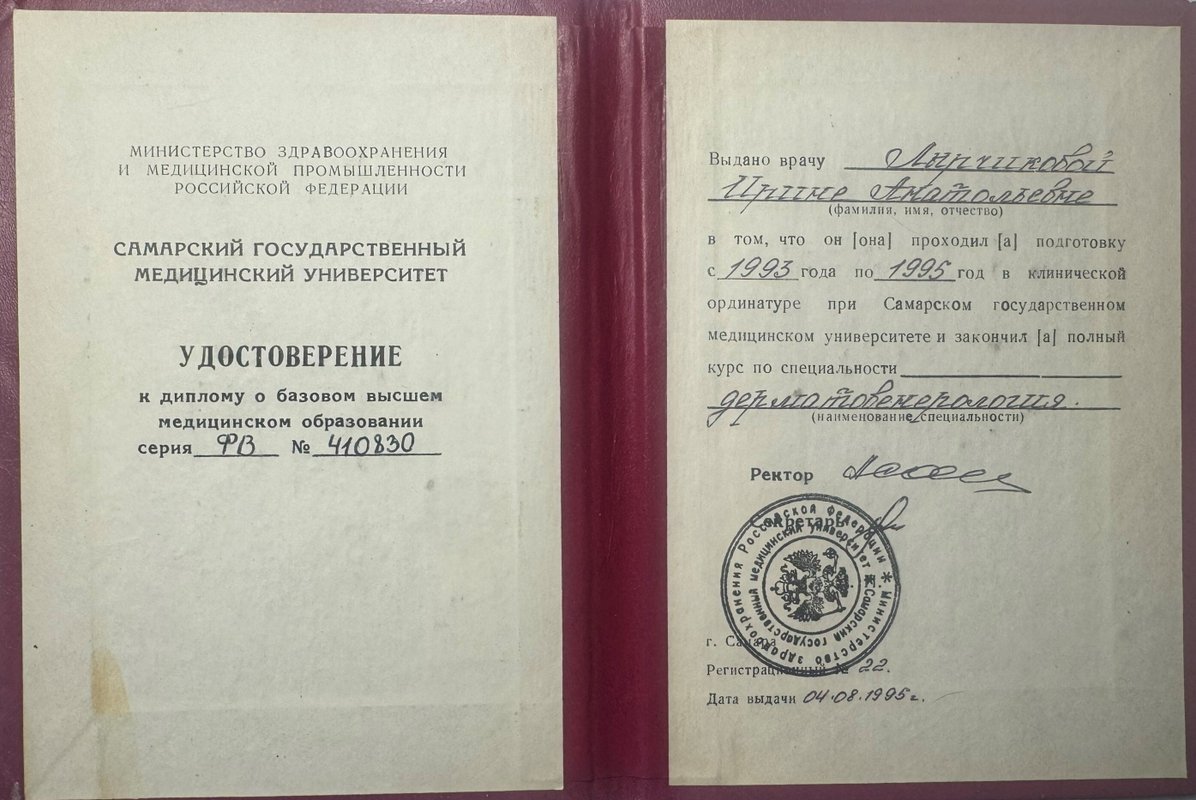 МИНИСТЕРСТВО ЗДРАВООХРАНЕНИЯ
И МЕДИЦИНСКОЙ ПРОМЫШЛЕННОСТИ
РОССИЙСКОЙ ФЕДЕРАЦИИ
САМАРСКИЙ ГОСУДАРСТВЕННЫЙ
МЕДИЦИНСКИЙ УНИВЕРСИТЕТ
УДОСТОВЕРЕНИЕ
к диплому о базовом высшем
медицинском образовании
серия ФВ № 410830
Выдано врачу
Ирине Анатольевне
(фамилия, имя, отчество)
в том, что он [она] проходил [а] подготовку
с 1993 года по 1995 год в клинической
ординатуре при Самарском государственном
медицинском университете и закончил [а] полный
курс по специальности
дерматовенерология.
(наименование специальности)
Ректор
Секретарь
Министерство здравоохранения Российской Федерации *
Самарский государственный медицинский университет *
г. Самара
Регистрационный № 22.
Дата выдачи 04.08.1995 г.